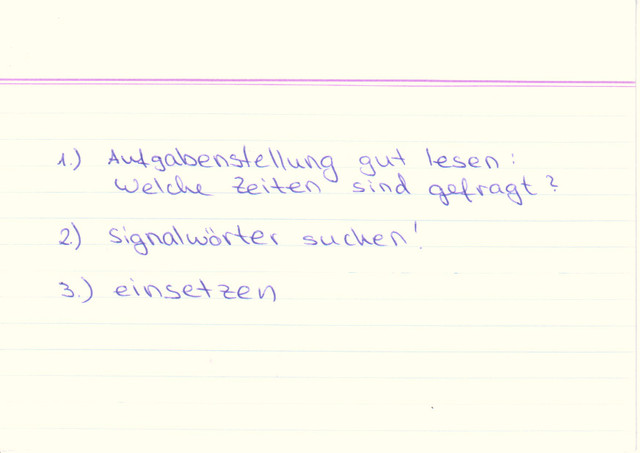 1.) Aufgabenstellung gut lesen:
Welche Zeiten sind gefragt?
2) Signalwörter suchen!
3.) einsetzen